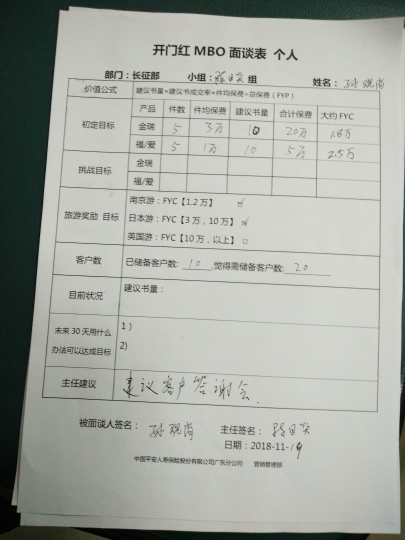 开门红 MBO 面谈表 个人
部门：长征部 小组： 组 姓名：孙
价值公式 建议书量×建议书成交率×件均保费=总保费（FYP）
产品 件数 件均保费 建议书量 合计保费 大约 FYC
初定目标
金瑞 5 3万 10 20万 1.8万
福/爱 5 1万 10 5万 2.5万
挑战目标
金瑞
福/爱
旅游奖励 目标
南京游：FYC【1.2 万】 ☑
日本游：FYC【3 万，10 万】 ☑
英国游：FYC【10 万，以上】 □
客户数 已储备客户数: 10 ,觉得需储备客户数: 20
目前状况 建议书量：
未来 30 天用什么
办法可以达成目标
1）
2)
主任建议 建议客户答谢会.
被面谈人签名：孙 主任签名：
日期：2018-11-19
中国平安人寿保险股份有限公司广东分公司 营销管理部